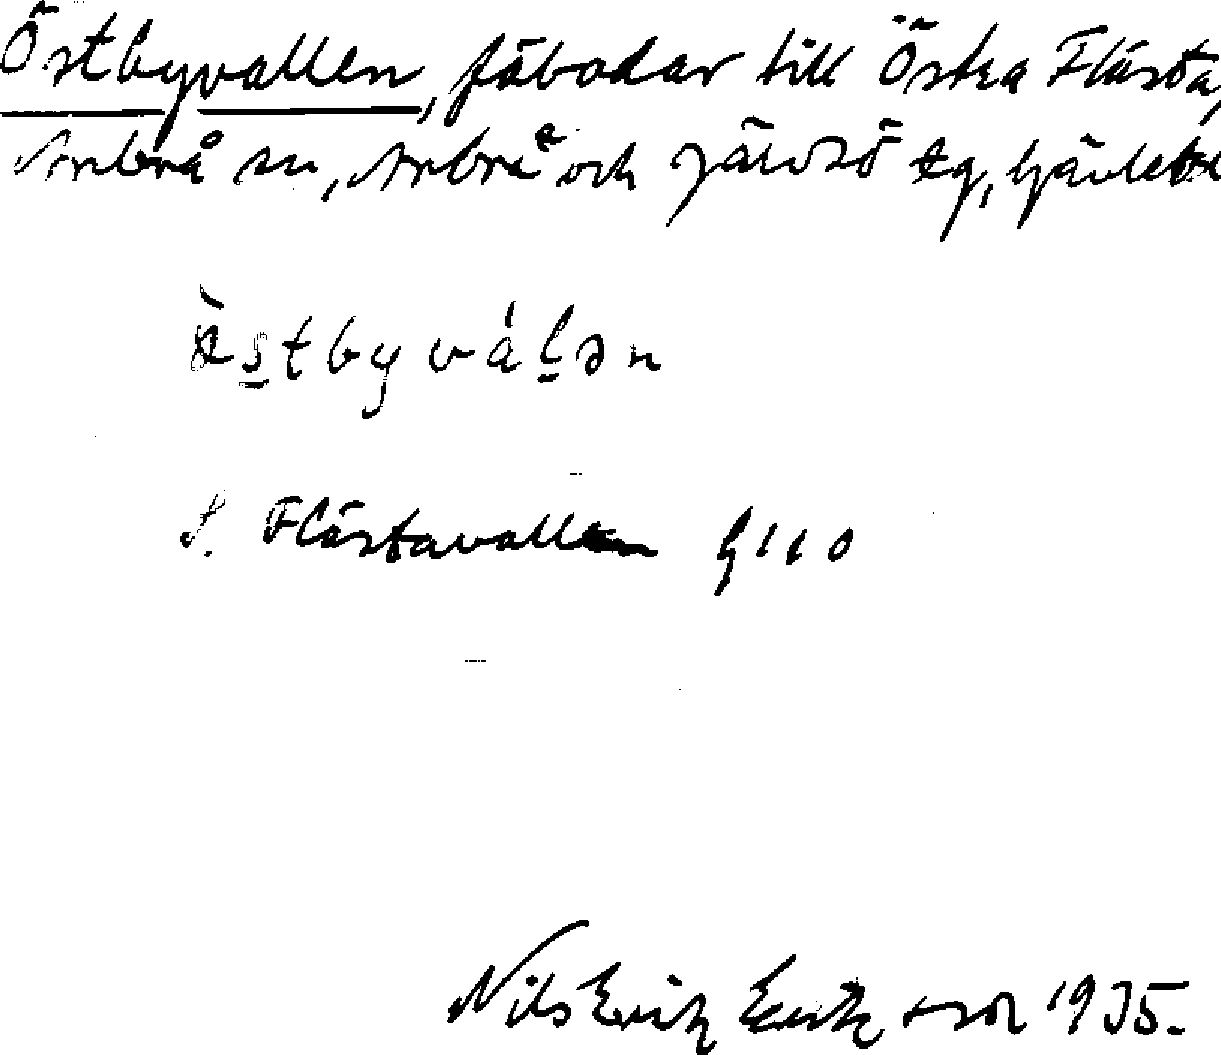 Östbyvallen, fäbodar till Östra Flästa,
Arbrå sn, Arbrå och Järvsö tg, Gävlebl
östbyválən
S. Flästavallen G110
Nils Erik Eriksson 1935.